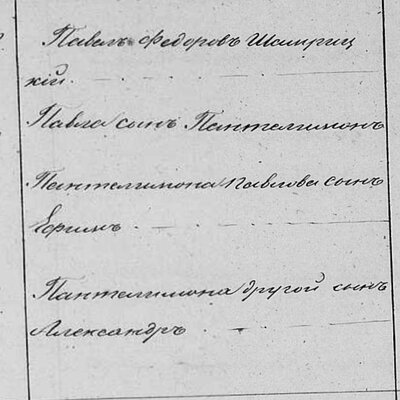 Павелъ Федоровъ Шамриц
кій.
Павла сынъ Пантелимонъ
Пантелимона Павлова сынъ
Ефимъ.
Пантелимона другой сынъ
Александръ.